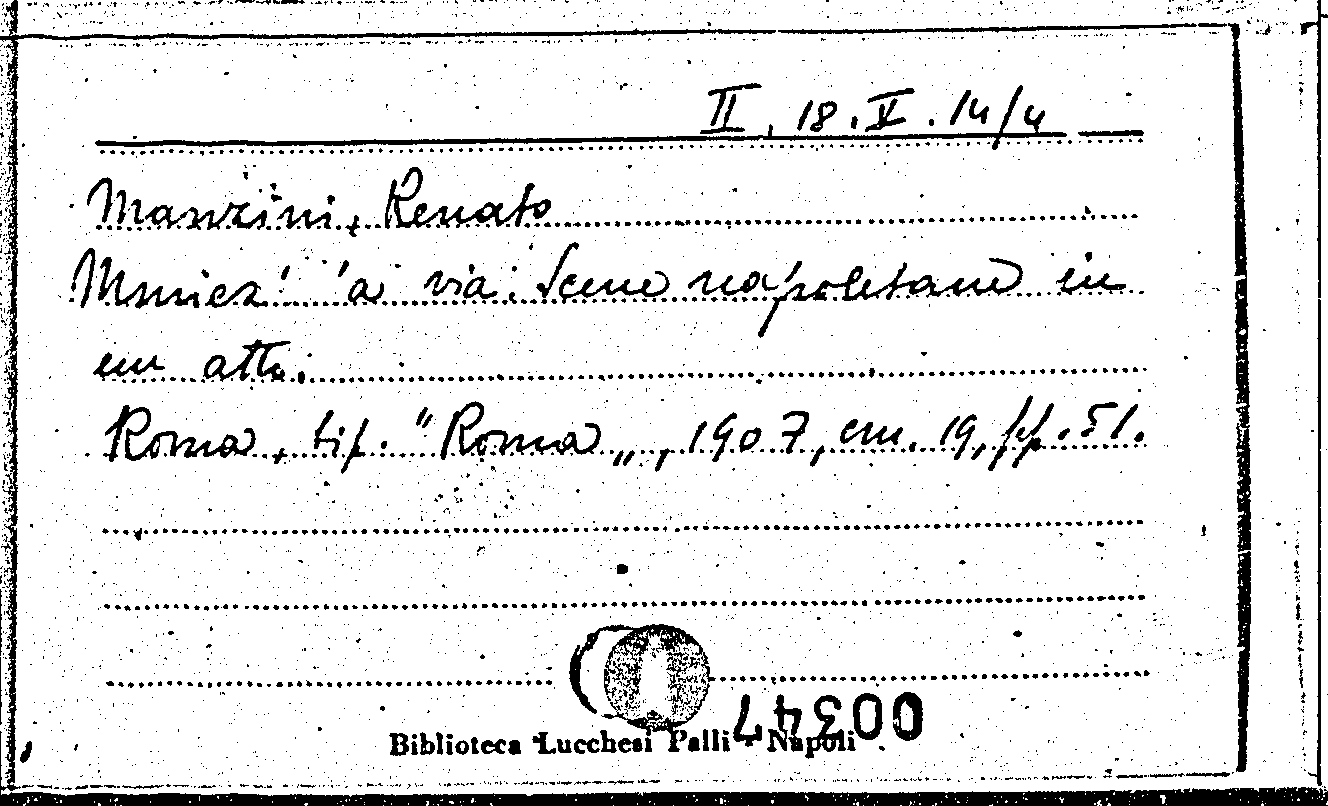 II, 18.V.14/4
Manzini, Renato
Mmiez' 'a via. Scene napoletane in
un atto.
Roma, tip. "Roma„, 1907, cm. 19, pp. 51.
00347
Biblioteca Lucchesi Palli - Napoli